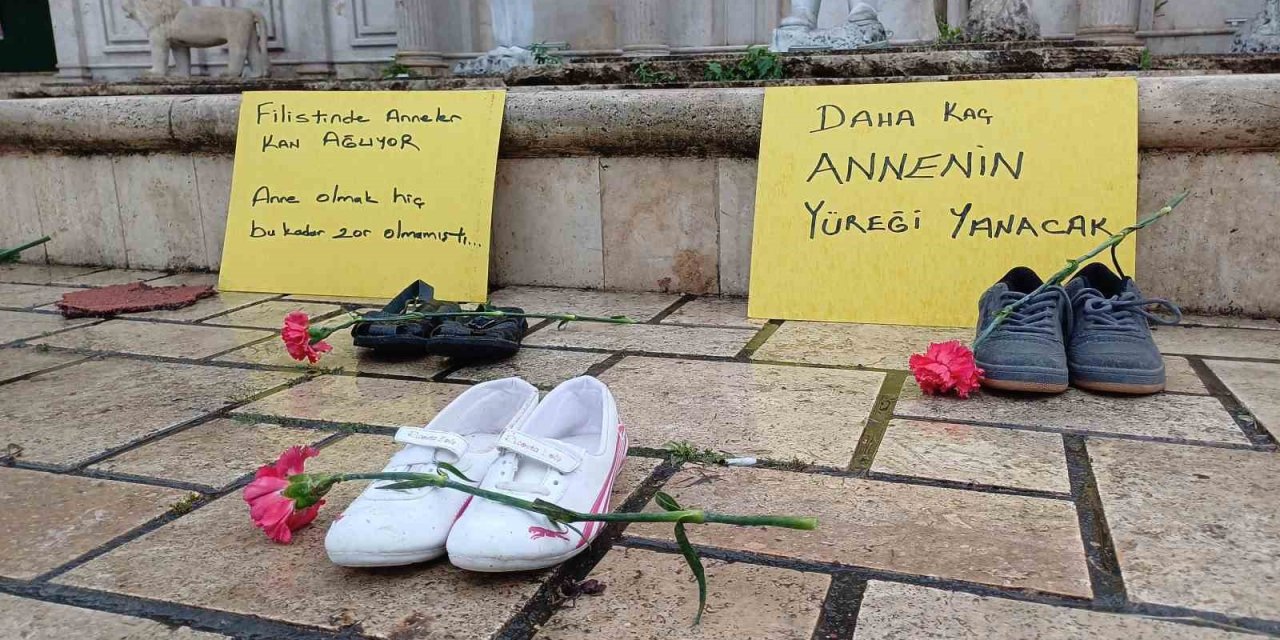 Filistinde Anneler
Kan Ağlıyor
Anne olmak hiç
bu kadar zor olmamıştı...
Daha Kaç
ANNENİN
YÜREĞİ YANACAK